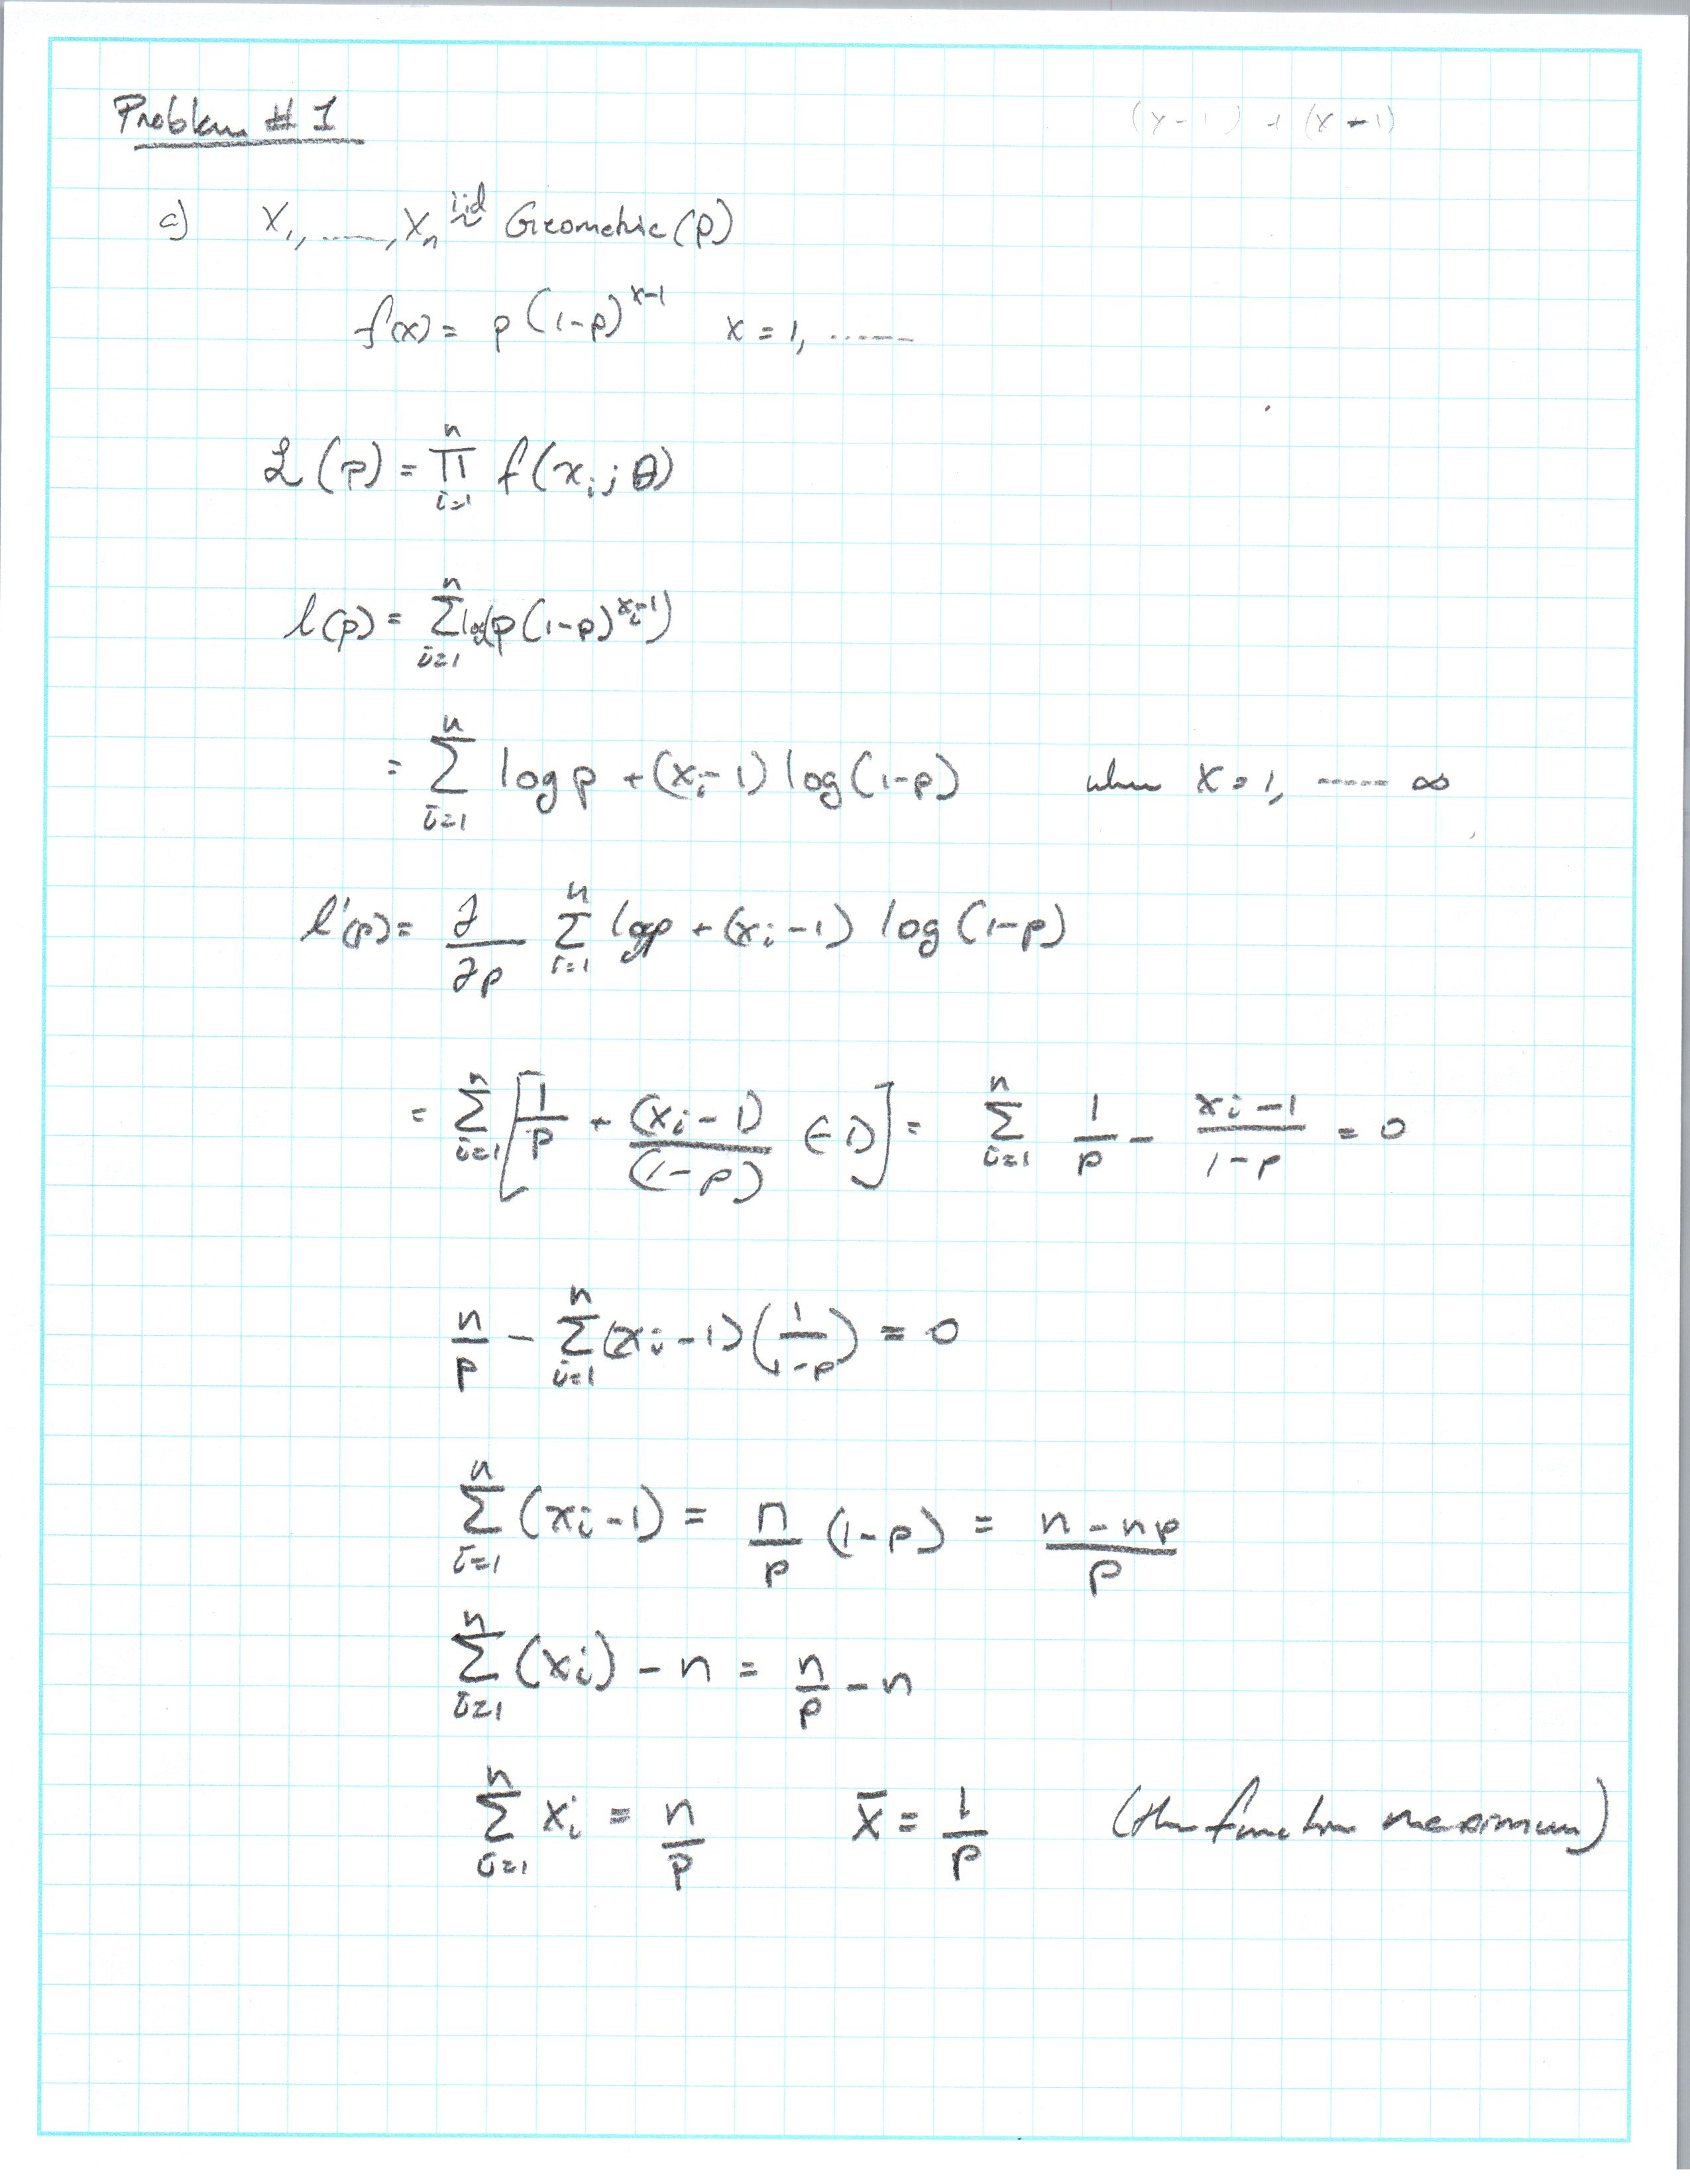 Problem # 1
(x-1) + (x+1)
a) X₁, ......, Xₙ iid ~ Geometric (p)
f(x) = p (1-p)^(x-1) x = 1, ......
L (p) = ∏_{i=1}^{n} f(x_i; θ)
l(p) = Σ_{i=1}^{n} log(p(1-p)^(x_i-1))
= Σ_{i=1}^{n} log p + (x_i-1) log(1-p) when X = 1, ...... ∞
l'(p) = ∂/∂p Σ_{i=1}^{n} log p + (x_i-1) log (1-p)
= Σ_{i=1}^{n} [1/p + (x_i-1)/(1-p) (-1)] = Σ_{i=1}^{n} 1/p - (x_i-1)/(1-p) = 0
n/p - Σ_{i=1}^{n} (x_i-1) (1/(1-p)) = 0
Σ_{i=1}^{n} (x_i-1) = n/p (1-p) = (n-np)/p
Σ_{i=1}^{n} (x_i) - n = n/p - n
Σ_{i=1}^{n} x_i = n/p x̄ = 1/p (the function maximum)